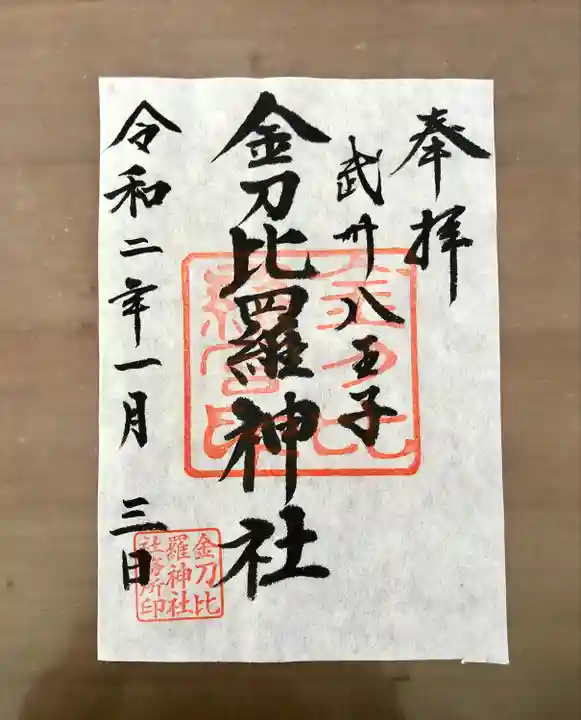 奉拝
武州八王子
金刀比羅神社
令和二年一月三日
金刀比
羅神社
社務所印